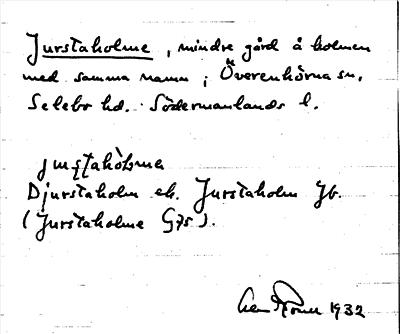 Jurstaholme, mindre gård å holmen
med samma namn i Överenhörna sn,
Selebo hd. Södermanlands l.
Djurstaholm ek. Jurstaholm Jb.
(Jurstaholme G75).
1932